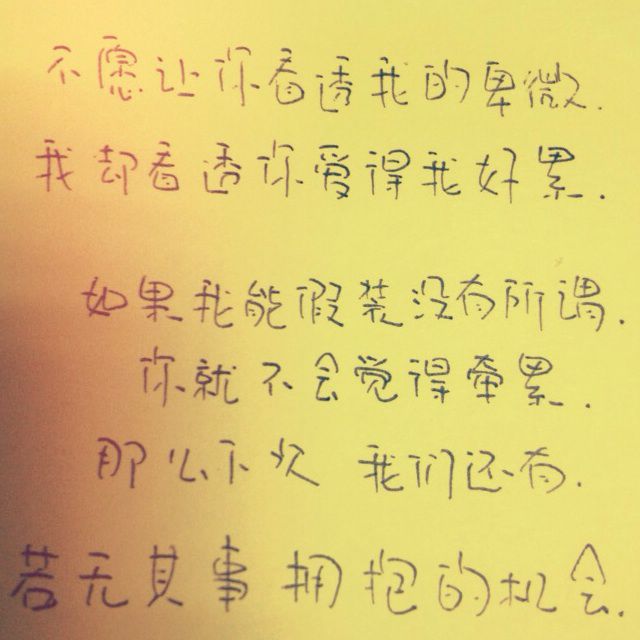 不愿让你看透我的卑微.
我却看透你爱得我好累.
如果我能假装没有所谓.
你就不会觉得牵累.
那么下次 我们还有.
若无其事 拥抱的机会.